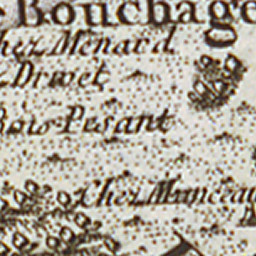 Bouchage
chez Menard
Drivet
Bois Pesant
Chez Manceau